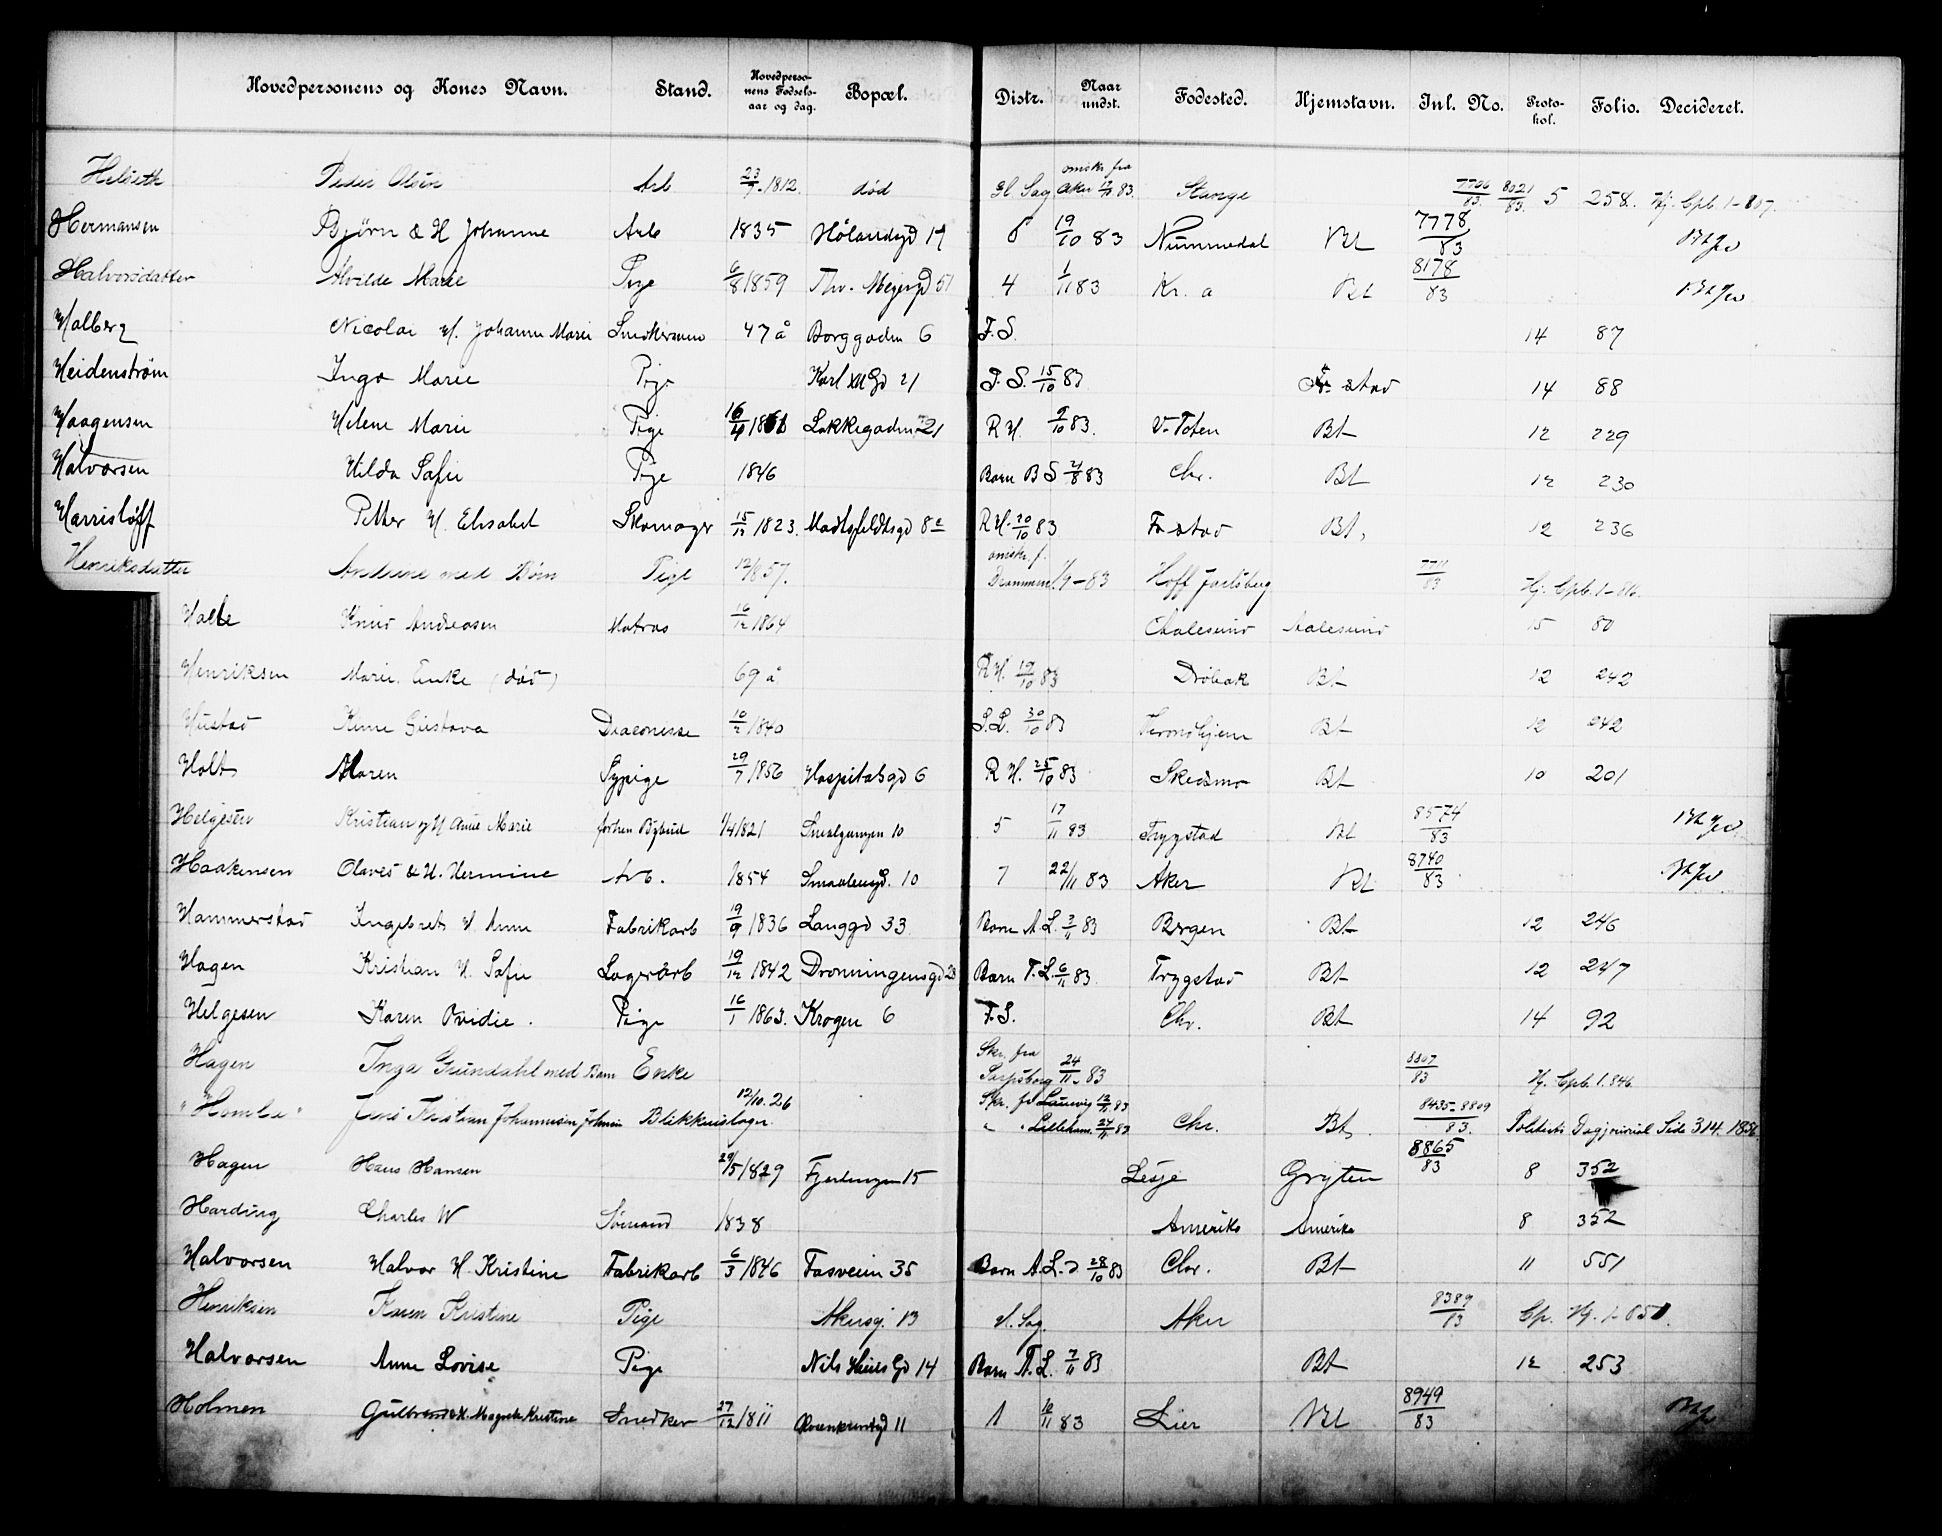 Hovedpersonens og Kones Navn. Stand. Hovedpersonens Fødselsaar og dag. Bopæl. Distr. Naar undst. Fødested. Hjemstavn. Inl. No. Protokol. Folio. Decideret.
Helseth Peder Olsen Arb 23/7 1812. død Gl. Sag omskr. fra Aker 83. Stange 7706/83 8021/83. 5 258. Hj. Cpb. 1-807.
Hermansen Bjørn & H Johanne Arb 1835 Hølandsgd 19 6 19/10 83 Nummedal Bt 7778/83
Halvorsdatter Alvilde Marie Pige 6/8 1859 Thv. Meyersgd 51 4 1/11 83 Kr. a Bt 8178/83
Halberg Nicolai H. Johanne Marie Snedkersvend 47 å Borggaden 6 F. S. 14 87
Heidenstrøm Inga Marie Pige Karl XII Gd 21 F. S. 15/10 83 Fr stad 14 88
Haagensen Helene Marie Pige Lakkegaden 21 R H. 9/10 83. V. Toten Bt 12 229
Halvorsen Hilda Sofie Pige 1846 Barn B S 2/8 83 Chr. Bt 12 230
Harrisløff Petter H. Elisabet Skomager 15/12 1823. Mads 8 R H. 20/10 83 Fr stad Bt, 12 236
Henriksdatter Andrine med Børn Pige 12/1857. omskr. f. Drammen 1/9-83 Hoff Jarlsberg 7711/83 Hj. Cpb. 1-816.
Halle Knud Andreasen Matros 16/12 1864 Aalesund Aalesund 15 80
Henriksen Marie. Enke (død) 69 å R H. 19/10 83 Drøbak Bt 12 242
Hustad Gustava Diaconisse 10/2 1840 30/10 83 Trondhjem Bt 12 242
Holt Maren Sypige 29/7 1856 Hospitalsgd 6 R H. 25/10 83 Skedsmo Bt 10 201
Helgesen Kristian og H Anne Marie 1/4 1821 Smalgangen 10 5 17/11 83 Trygstad Bt 8574/83
Haakensen Olaves & H. Hermine Arb. 1854 Smaalensgd. 10 7 22/11 83 Aker Bt 8740/83
Hammerstad Ingebret H Anne Fabrikarb 19/9 1836 Langgd 33 Barn A. L. 3/11 83 Bergen Bt 12 246
Hagen Kristian H. Sofie Lagerarb 19/12 1842 Dronningensgd 23 Barn T. L. 6/11 83 Trygstad Bt 12 247
Helgesen Karen Ovidie. Pige 16/1 1863. Krogen 6 F. S. Chr. Bt 14 92
Hagen Inga Grundahl med Barn Enke Skr. fra Sarpsborg 24/11-83 8807/83 Hj. Cpb. 1. 846
"Humla" Jens Kristian Johannesen Blikkenslager 12/10. 26 Skr. fr Laurvig 13/11 83
" " Lilleham. 24/11 83 Chr. Bt. 8435-8809/83. Politiets Dagjournal Side 314. 1856.
Hagen Hans Hansen 29/5 1829 Fjerdingen 15 Lesje Gryten 8865/83 8 352
Harding Charles W Sømand 1838 Amerika Amerika 8 352
Halvorsen Halvor H. Kristine Fabrikarb 6/3 1846 Fasveien 35 Barn A. L. 28/10 83 Chr. Bt 11 551
Henriksen Karen Kristine Pige Akersg. 13 H. Sag. Aker 8389/83 Cp. Hj. 1-851.
Halvorsen Anne Lovise Pige Nils Huus Gd 14 Barn A. L. 7/11 83 Bt 12 253
Holmen Gulbrand & H. Magrete Kristine Snedker 27/12 1811 11 1 10/11 83 Lier Bt 8949/83